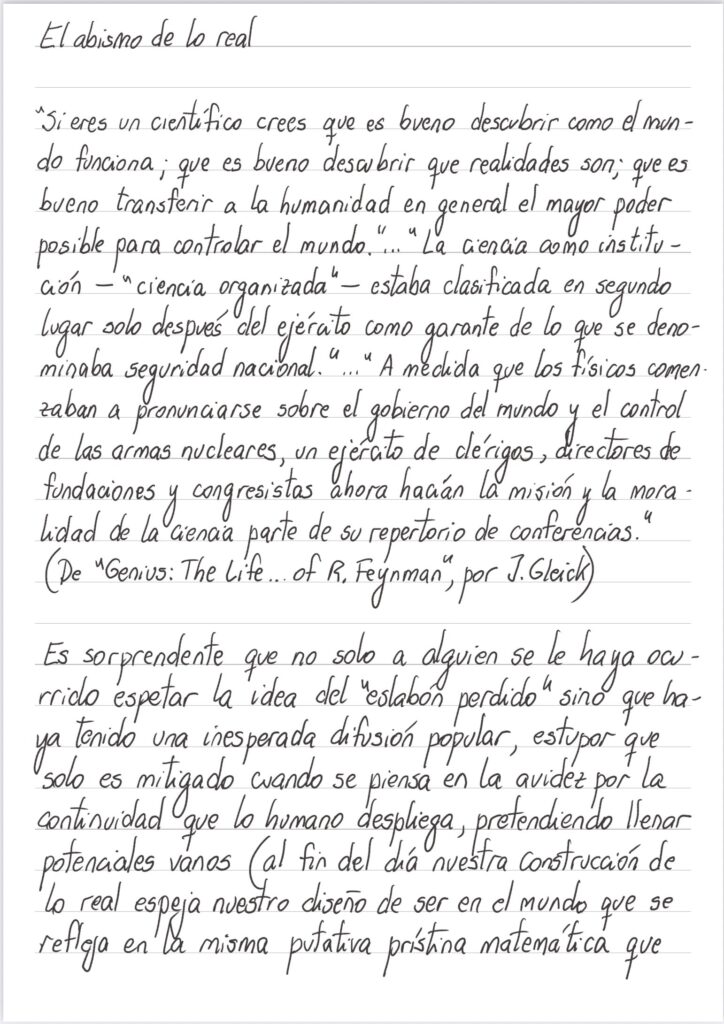 El abismo de lo real
"Si eres un científico crees que es bueno descubrir como el mun-
do funciona; que es bueno descubrir que realidades son; que es
bueno transferir a la humanidad en general el mayor poder
posible para controlar el mundo."..."La ciencia como institu-
ción – "ciencia organizada" – estaba clasificada en segundo
lugar solo después del ejército como garante de lo que se deno-
minaba seguridad nacional."..."A medida que los físicos comen-
zaban a pronunciarse sobre el gobierno del mundo y el control
de las armas nucleares, un ejército de clérigos, directores de
fundaciones y congresistas ahora hacían la misión y la mora-
lidad de la ciencia parte de su repertorio de conferencias."
(De "Genius: The Life... of R. Feynman", por J. Gleick)
Es sorprendente que no solo a alguien se le haya ocu-
rrido espetar la idea del "eslabón perdido" sino que ha-
ya tenido una inesperada difusión popular, estupor que
solo es mitigado cuando se piensa en la avidez por la
continuidad que lo humano despliega, pretendiendo llenar
potenciales vanos (al fin del día nuestra construcción de
lo real espeja nuestro diseño de ser en el mundo que se
refleja en la misma putativa prístina matemática que